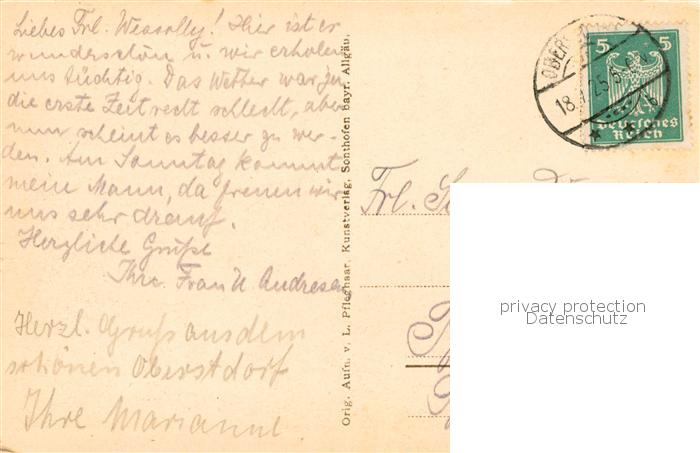 Liebes Frl. Wessolly! Hier ist es
wunderschön u. wir erholen
uns tüchtig. Das Wetter war ja
die erste Zeit recht schlecht, aber
nun scheint es besser zu wer-
den. Am Sonntag kommt
mein Mann, da freuen wir
uns sehr drauf.
Herzliche Grüße
Ihre Frau U. Andresen
Herzl. Gruß aus dem
schönen Oberstdorf
Ihre Marianne
Orig. Aufn. v. L. Pfleghaar, Kunstverlag, Sonthofen bayr. Allgäu.
5 5
Deutsches
Reich
Frl.
privacy protection
Datenschutz